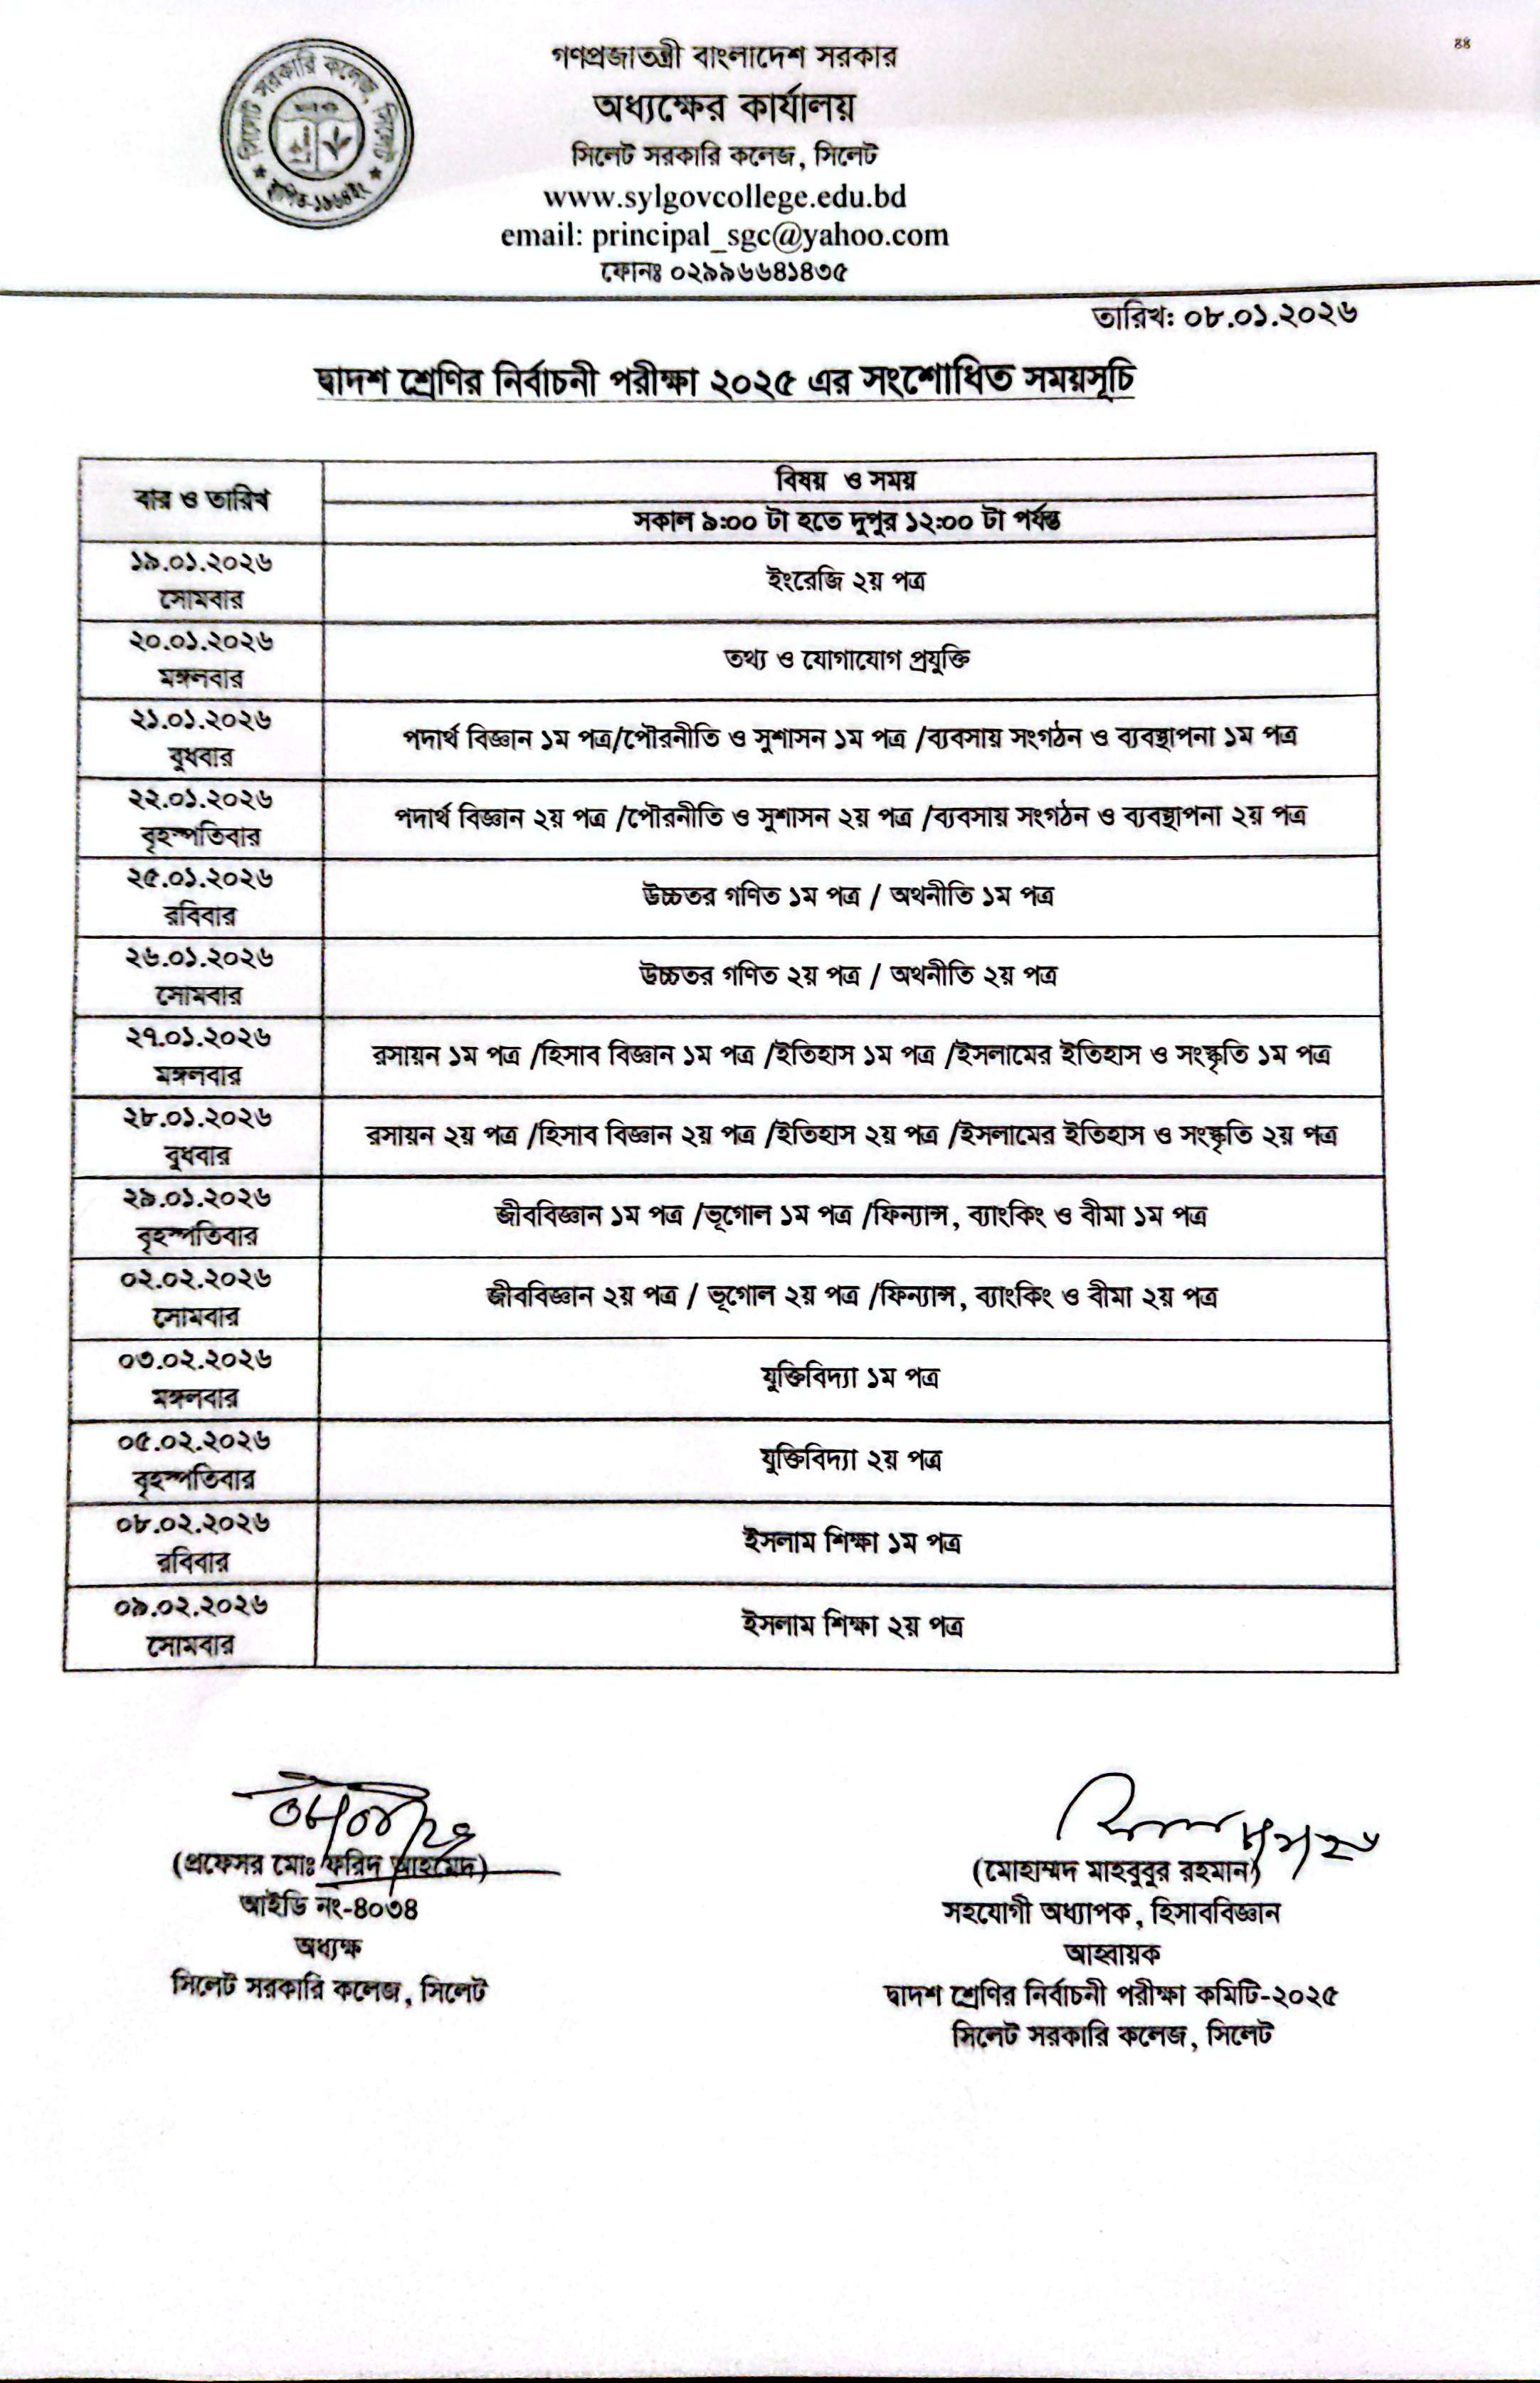 ৪৪
গণপ্রজাতন্ত্রী বাংলাদেশ সরকার
অধ্যক্ষের কার্যালয়
সিলেট সরকারি কলেজ, সিলেট
www.sylgovcollege.edu.bd
email: principal_sgc@yahoo.com
ফোনঃ ০২৯৯৬৬৪১৪৩৫
সিলেট সরকারি কলেজ, সিলেট
স্থাপিত-১৯৬৪ইং
তারিখ: ০৮.০১.২০২৬
দ্বাদশ শ্রেণির নির্বাচনী পরীক্ষা ২০২৫ এর সংশোধিত সময়সূচি
বার ও তারিখ
বিষয় ও সময়
সকাল ৯:০০ টা হতে দুপুর ১২:০০ টা পর্যন্ত
১৯.০১.২০২৬
সোমবার
ইংরেজি ২য় পত্র
২০.০১.২০২৬
মঙ্গলবার
তথ্য ও যোগাযোগ প্রযুক্তি
২১.০১.২০২৬
বুধবার
পদার্থ বিজ্ঞান ১ম পত্র/পৌরনীতি ও সুশাসন ১ম পত্র /ব্যবসায় সংগঠন ও ব্যবস্থাপনা ১ম পত্র
২২.০১.২০২৬
বৃহস্পতিবার
পদার্থ বিজ্ঞান ২য় পত্র /পৌরনীতি ও সুশাসন ২য় পত্র /ব্যবসায় সংগঠন ও ব্যবস্থাপনা ২য় পত্র
২৫.০১.২০২৬
রবিবার
উচ্চতর গণিত ১ম পত্র / অথনীতি ১ম পত্র
২৬.০১.২০২৬
সোমবার
উচ্চতর গণিত ২য় পত্র / অথনীতি ২য় পত্র
২৭.০১.২০২৬
মঙ্গলবার
রসায়ন ১ম পত্র /হিসাব বিজ্ঞান ১ম পত্র /ইতিহাস ১ম পত্র /ইসলামের ইতিহাস ও সংস্কৃতি ১ম পত্র
২৮.০১.২০২৬
বুধবার
রসায়ন ২য় পত্র /হিসাব বিজ্ঞান ২য় পত্র /ইতিহাস ২য় পত্র /ইসলামের ইতিহাস ও সংস্কৃতি ২য় পত্র
২৯.০১.২০২৬
বৃহস্পতিবার
জীববিজ্ঞান ১ম পত্র /ভূগোল ১ম পত্র /ফিন্যান্স, ব্যাংকিং ও বীমা ১ম পত্র
০২.০২.২০২৬
সোমবার
জীববিজ্ঞান ২য় পত্র / ভূগোল ২য় পত্র /ফিন্যান্স, ব্যাংকিং ও বীমা ২য় পত্র
০৩.০২.২০২৬
মঙ্গলবার
যুক্তিবিদ্যা ১ম পত্র
০৫.০২.২০২৬
বৃহস্পতিবার
যুক্তিবিদ্যা ২য় পত্র
০৮.০২.২০২৬
রবিবার
ইসলাম শিক্ষা ১ম পত্র
০৯.০২.২০২৬
সোমবার
ইসলাম শিক্ষা ২য় পত্র
(প্রফেসর মোঃ ফরিদ আহমেদ)
আইডি নং-৪০৩৪
অধ্যক্ষ
সিলেট সরকারি কলেজ, সিলেট
(মোহাম্মদ মাহবুবুর রহমান)
সহযোগী অধ্যাপক, হিসাববিজ্ঞান
আহ্বায়ক
দ্বাদশ শ্রেণির নির্বাচনী পরীক্ষা কমিটি-২০২৫
সিলেট সরকারি কলেজ, সিলেট